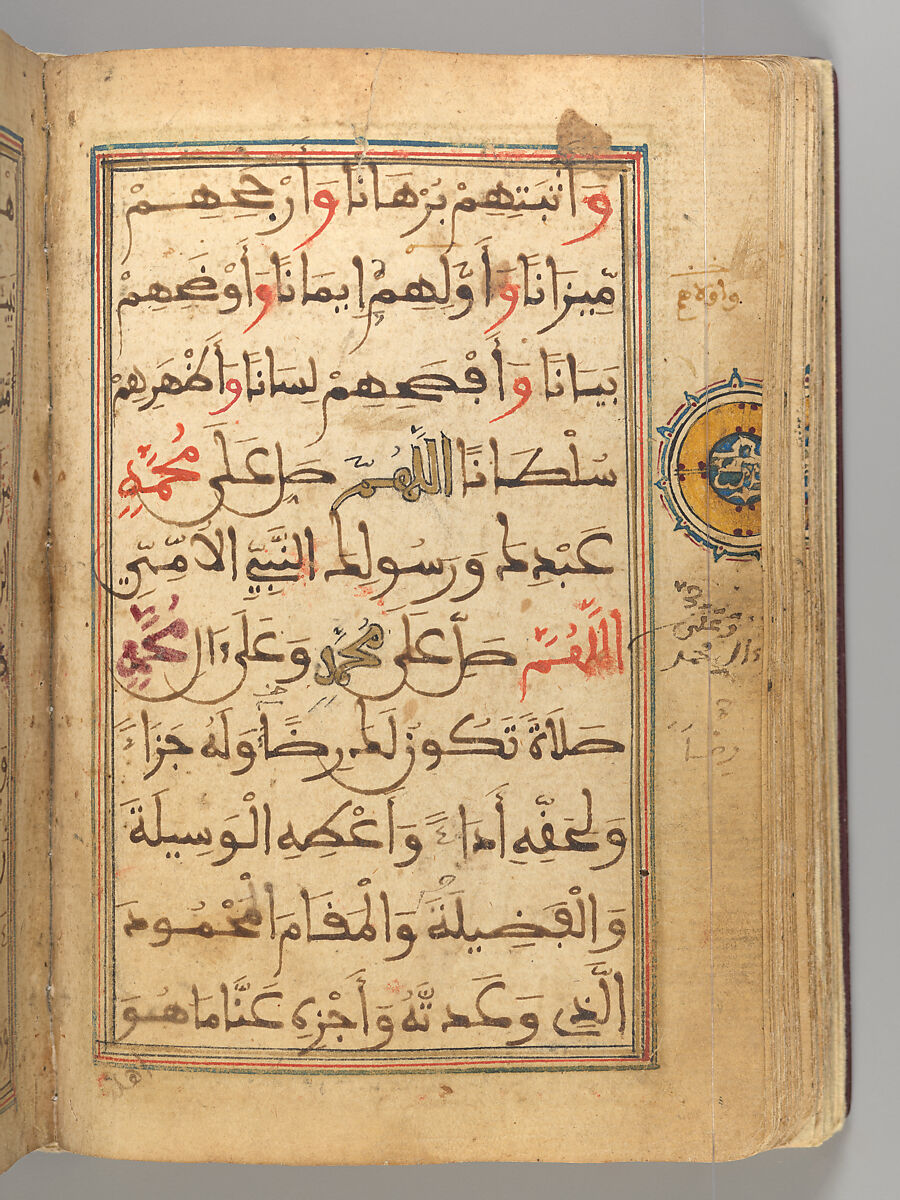 وَأَثْبَتِهِمْ بُرْهَانًا وَأَرْجَحِهِمْ
مِّيزَانًا وَأَوَّلِهِمْ إِيمَانًا وَأَوْضَحِهِمْ
بَيَانًا وَأَفْصَحِهِمْ لِسَانًا وَأَظْهَرِهِمْ
سُلْطَانًا اللَّهُمَّ صَلِّ عَلَى مُحَمَّدٍ
عَبْدِكَ وَرَسُولِكَ النَّبِيِّ الْأُمِّيِّ
اللَّهُمَّ صَلِّ عَلَى مُحَمَّدٍ وَعَلَى ءَالِ مُحَمَّدٍ
صَلَاةً تَكُونُ لَكَ رِضًا وَلَهُ جَزَاءً
وَلِحَقِّهِ أَدَاءً وَأَعْطِهِ الْوَسِيلَةَ
وَالْفَضِيلَةَ وَالْمَقَامَ الْمَحْمُودَ
الَّذِي وَعَدتَّهُ وَأَجْزِهِ عَنَّا مَا هُوَ
وَعَلَى
ءال محمد
رضاً
أهله